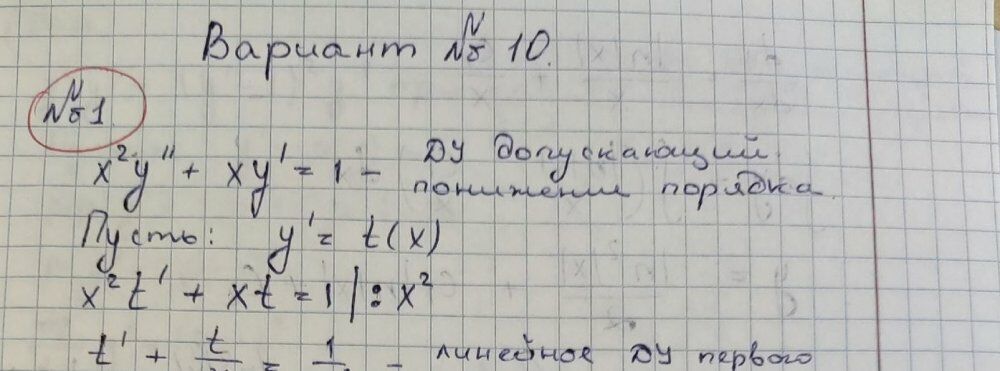 Вариант № 10.
№1.
x²y'' + xy' = 1 – ДУ допускающий
понижении порядка.
Пусть: y' = t(x)
x²t' + xt = 1 | : x²
t' + t = 1 – линейное ДУ первого